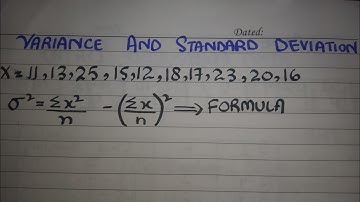 Dated:
VARIANCE AND STANDARD DEVIATION
X = 11, 13, 25, 15, 12, 18, 17, 23, 20, 16
σ² = Σx²/n - (Σx/n)² ⟹ FORMULA